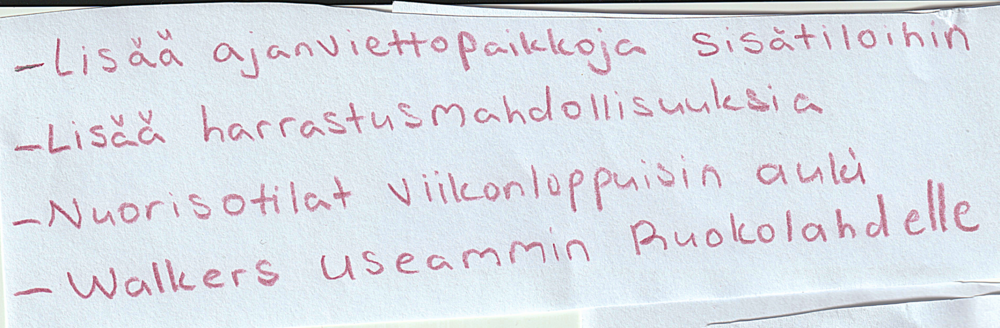 - Lisää ajanviettopaikkoja sisätiloihin
- Lisää harrastusmahdollisuuksia
- Nuorisotilat viikonloppuisin auki
- Walkers useammin Ruokolahdelle